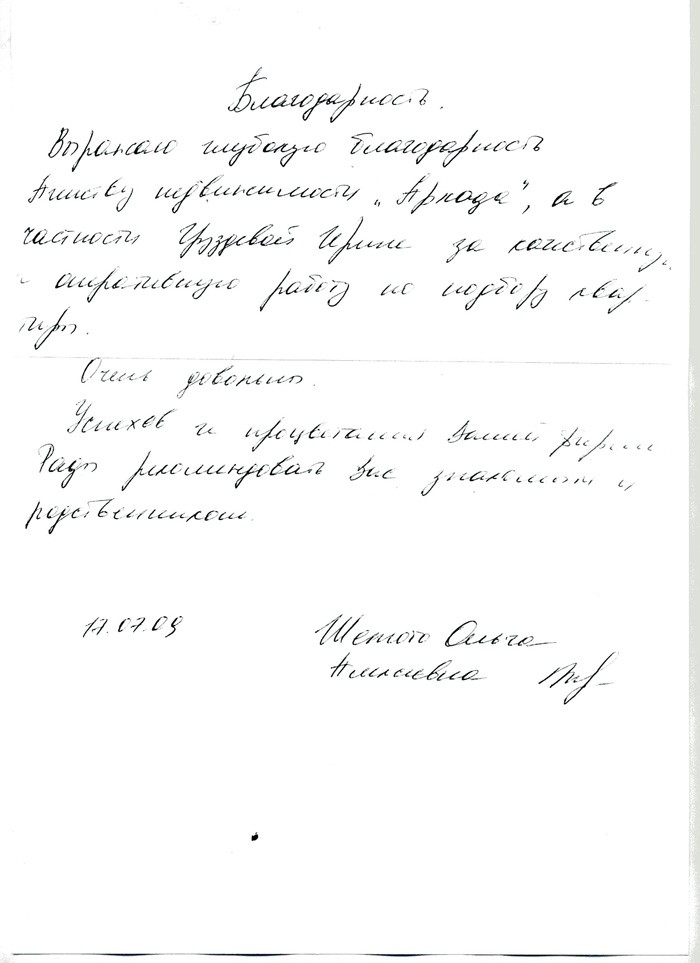 Благодарность.
Выражаю глубокую благодарность
Агенству недвижимости „Аркада", а в
частности Груздевой Ирине за качественную
и оперативную работу по подбору квар-
тиры.
Очень довольны.
Успехов и процветания Вашей фирме
Рады рекомендовать Вас знакомым и
родственникам.
17.07.09
Ольга
Алексеевна